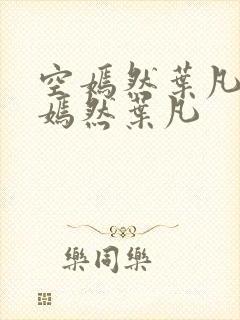 空嫣然葉凡
嫣然葉凡
樂同樂